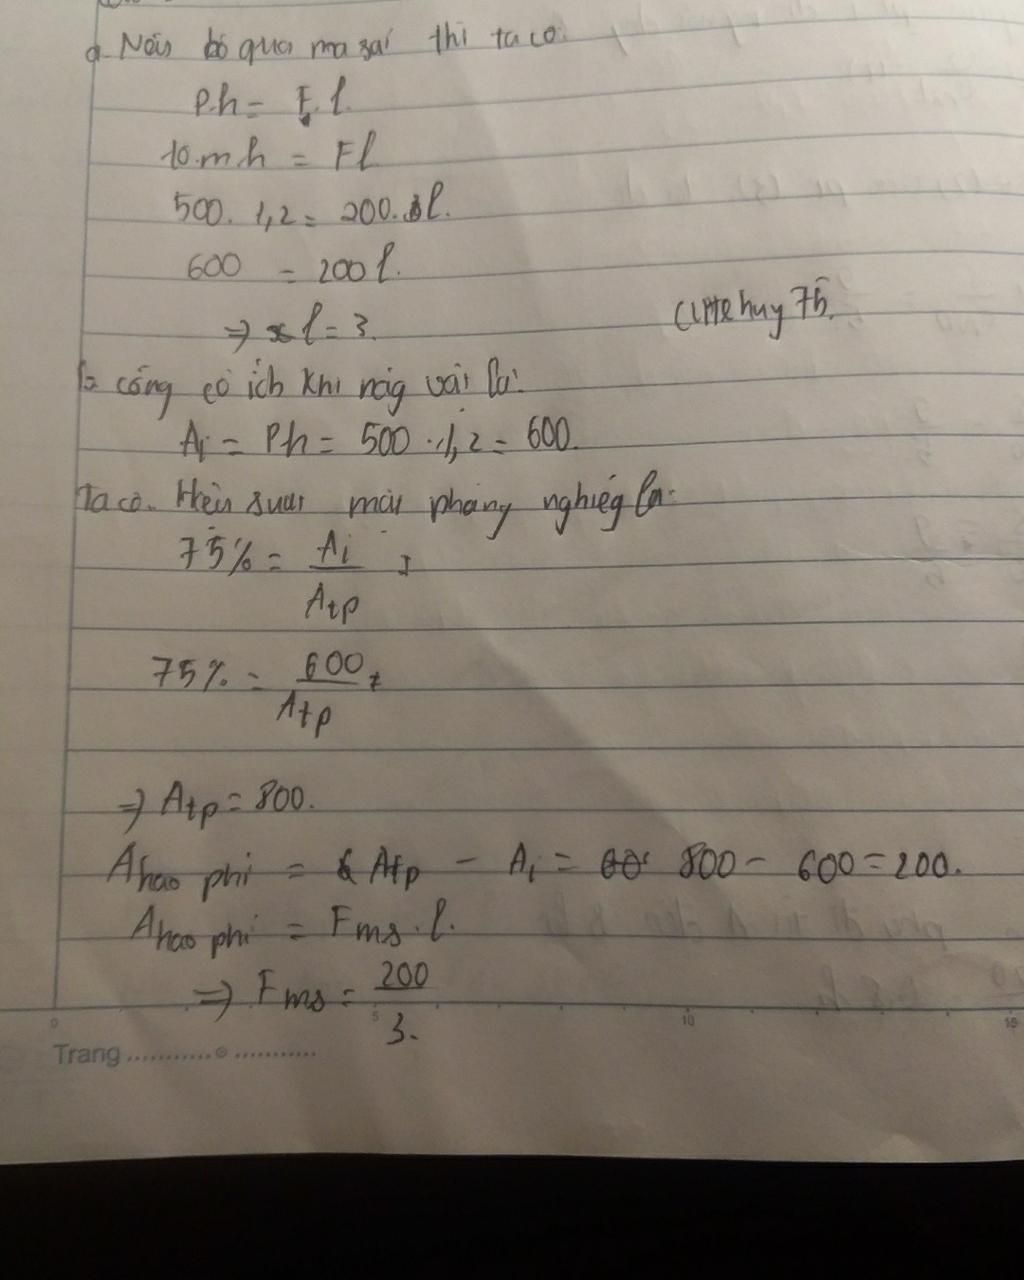 a. Nếu bỏ qua ma sát thì ta có:
P.h = F.l.
10.m.h = Fl
500. 1,2 = 200. l.
600 = 200l.
⇒ l = 3.
huy 75.
b. công có ích khi nâg vật là:
Ai = Ph = 500 . 1,2 = 600.
Ta có. Hiệu suất mặt phẳng nghiêg là:
75% = Ai / Atp
75% = 600 / Atp
⇒ Atp = 800.
Ahao phí = Atp - Ai = 800 - 600 = 200.
Ahao phí = Fms. l.
⇒ Fms = 200 / 3.
0 5 10 15
Trang